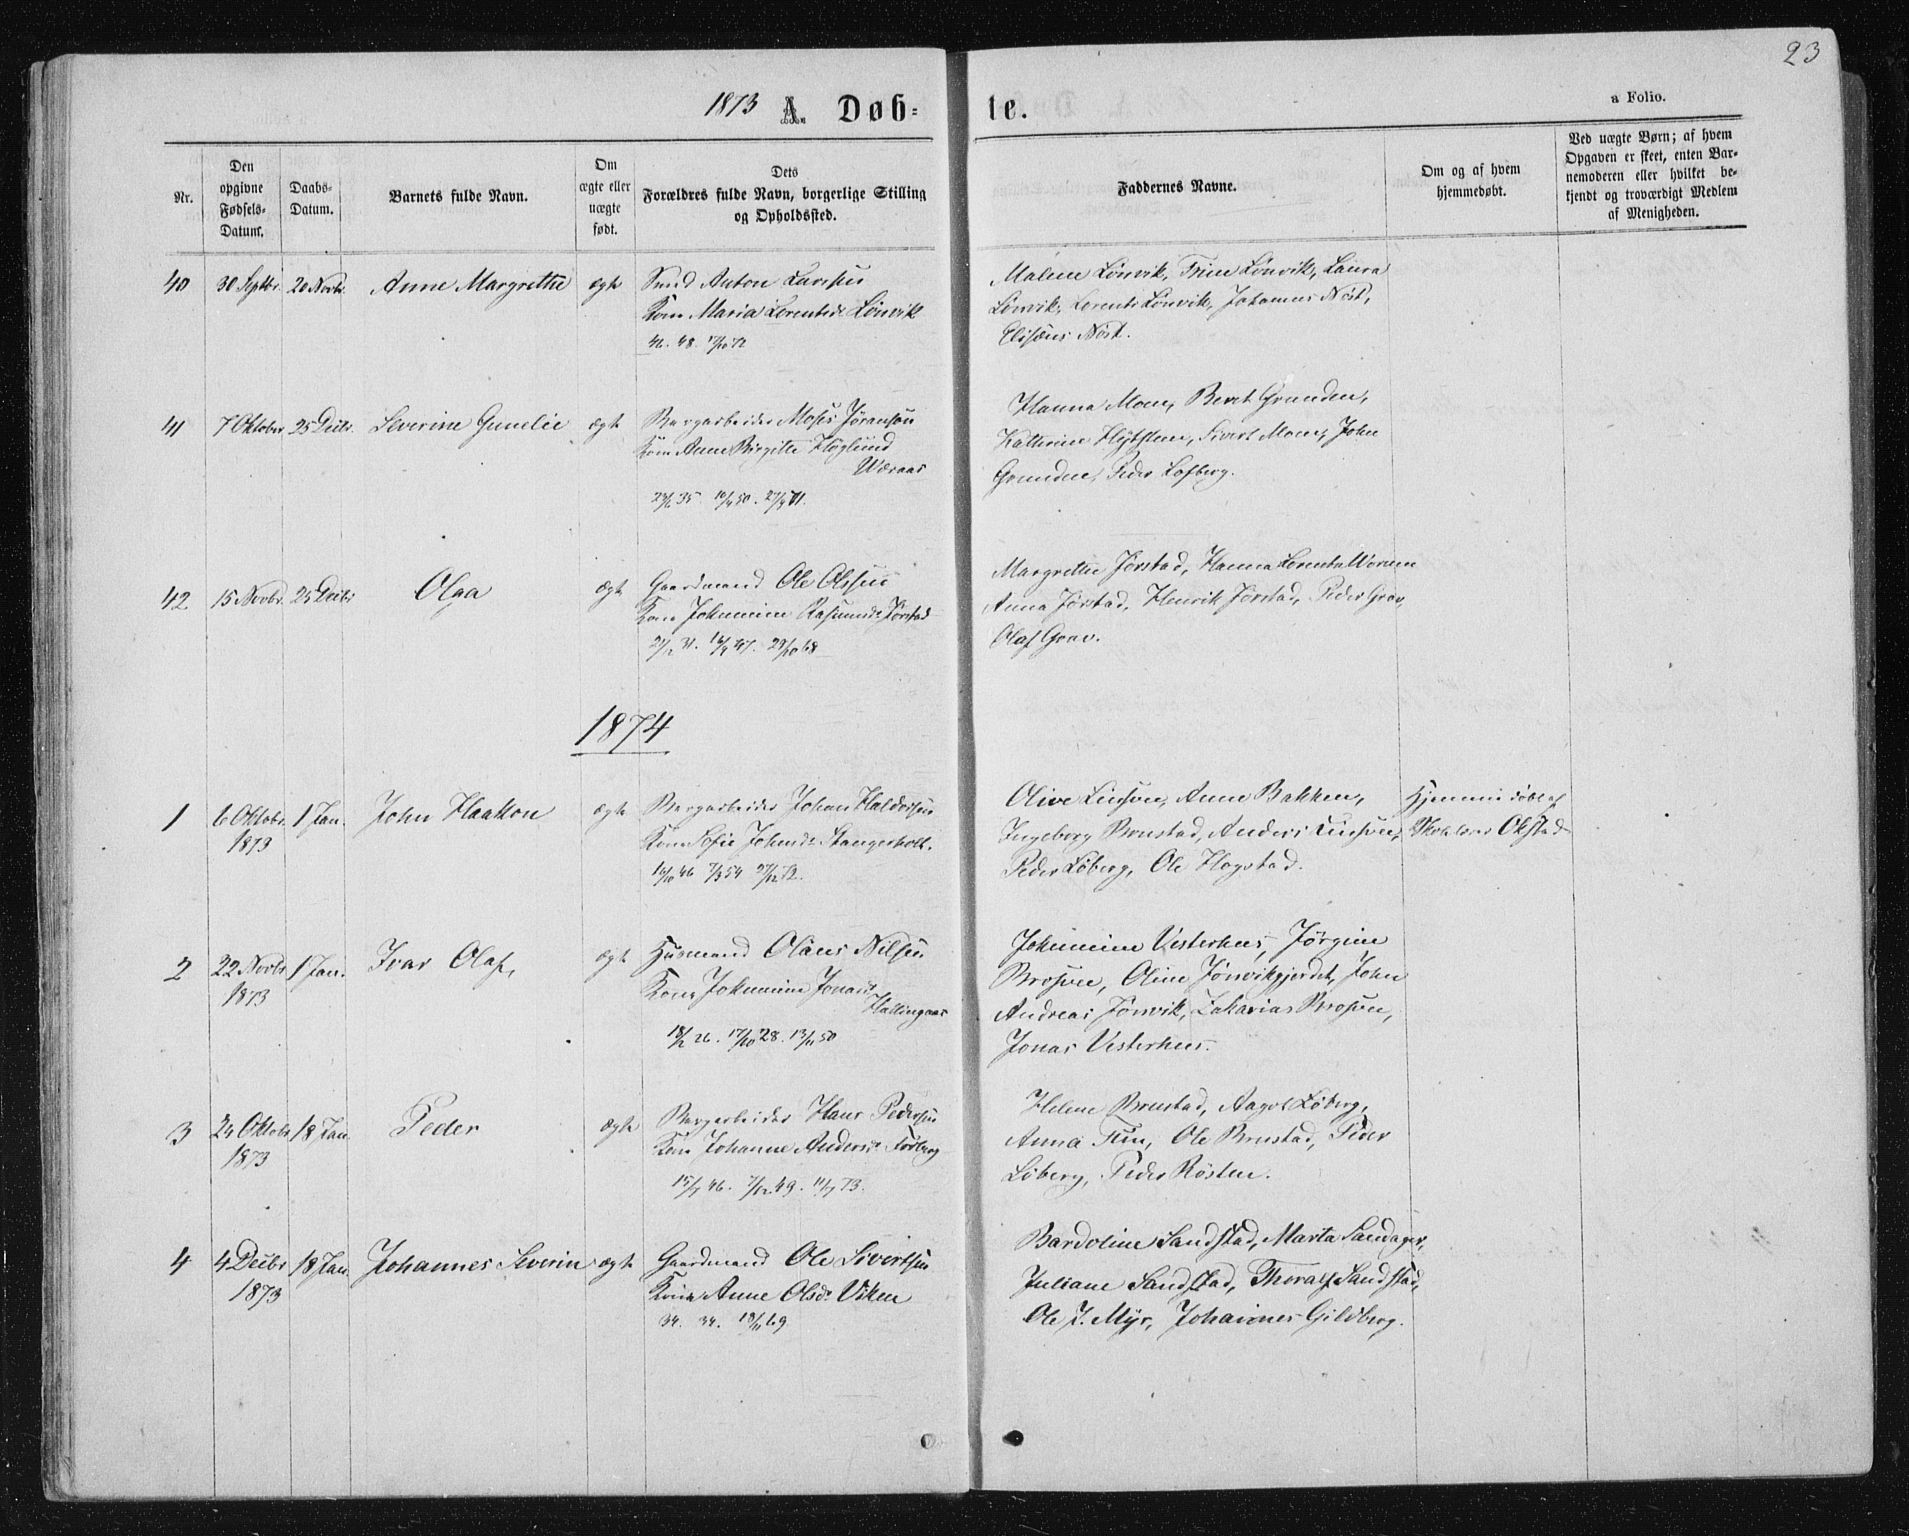 23
1873 A. Døb-
te.
a Folio.
Nr.
Den
opgivne
Fødsels-
Datum.
Daabs-
Datum.
Barnets fulde Navn.
Om
ægte eller
uægte
født.
Dets
Forældres fulde Navn, borgerlige Stilling
og Opholdssted.
Faddernes Navne.
Om og af hvem
hjemmedøbt.
Ved uægte Børn; af hvem
Opgaven er skeet, enten Bar-
nemoderen eller hvilket be-
kjendt og troværdigt Medlem
af Menigheden.
40 30 Septbr. 20 Novbr. Anne Margrethe ægte Smed Anton
Kone Maria Lorentsd. Lönvik
46. 48.
Malene Lönvik, Trine Lönvik, Laura
Lönvik, Lorents Lönvik, Johannes Nöst,
Elisæus Nöst.
41 7 Oktober 25 Decbr. Severine Gunelie ægte Bergarbeider Moses Jöransön
Kone Anne Birgitte Höglund
Væraas
35. 50. 71.
Hanna Moen, Beret Grunden,
Kathrine, Sivert Moen, John
Grunden, Peder Lofberg.
42 15 Novbr. 25 Decbr Olga ægte Gaardmand Ole Olssen
Kone Johannine Rasmusd. Jörstad
31. 47. 29/10 68
Margrethe Jörstad, Hanna Lorentsa
Anna Jörstad, Henrik Jörstad, Peder Grav,
Olaf Grav.
1874
1 6 Oktobr. 1 Jan. John Haakon ægte Bergarbeider Johan Haldorsen
1873 Kone Sofie Johnsd. Stangerholt.
46 7/3 54 27/12 72.
Olive, Anne Bakken,
Ingeborg Brustad, Anders
Peder Löberg, Ole Hogstad.
Hjemmedöbt af
Okstad
2 22 Novbr 1 Jan. Ivar Olaf, ægte Husmand Olaus Nilsen
1873 Kone Johannine Jonasd.
Hallingaas
18/2 26. 17/10 28. 50
Johannine Vesterhus, Jörgine
Brosven, Oline Jönvikgjerdet, John
Andreas Jönvik, Zakarias Brosven,
Jonas Vesterhus.
3 24 Oktobr 18 Jan. Peder ægte Bergarbeider Hans Pedersen
1873 Kone Johanne Andersd.
15/7 46. 7/12 49. 11/7 73.
Helene Brustad, Aagot Löberg,
Anna, Ole Brustad, Peder
Löberg, Peder Rösten.
4 4 Decbr 18 Jan. Johannes Severin ægte Gaardmand Ole Sivertsen
1873 Kone Anne Olsd. Viken
34. 34. 18/11 69
Bardoline Sandstad, Marta Sandager,
Juliane Sandstad, Thoralf Sandstad,
Ole J. Myr, Johannes Gildberg.